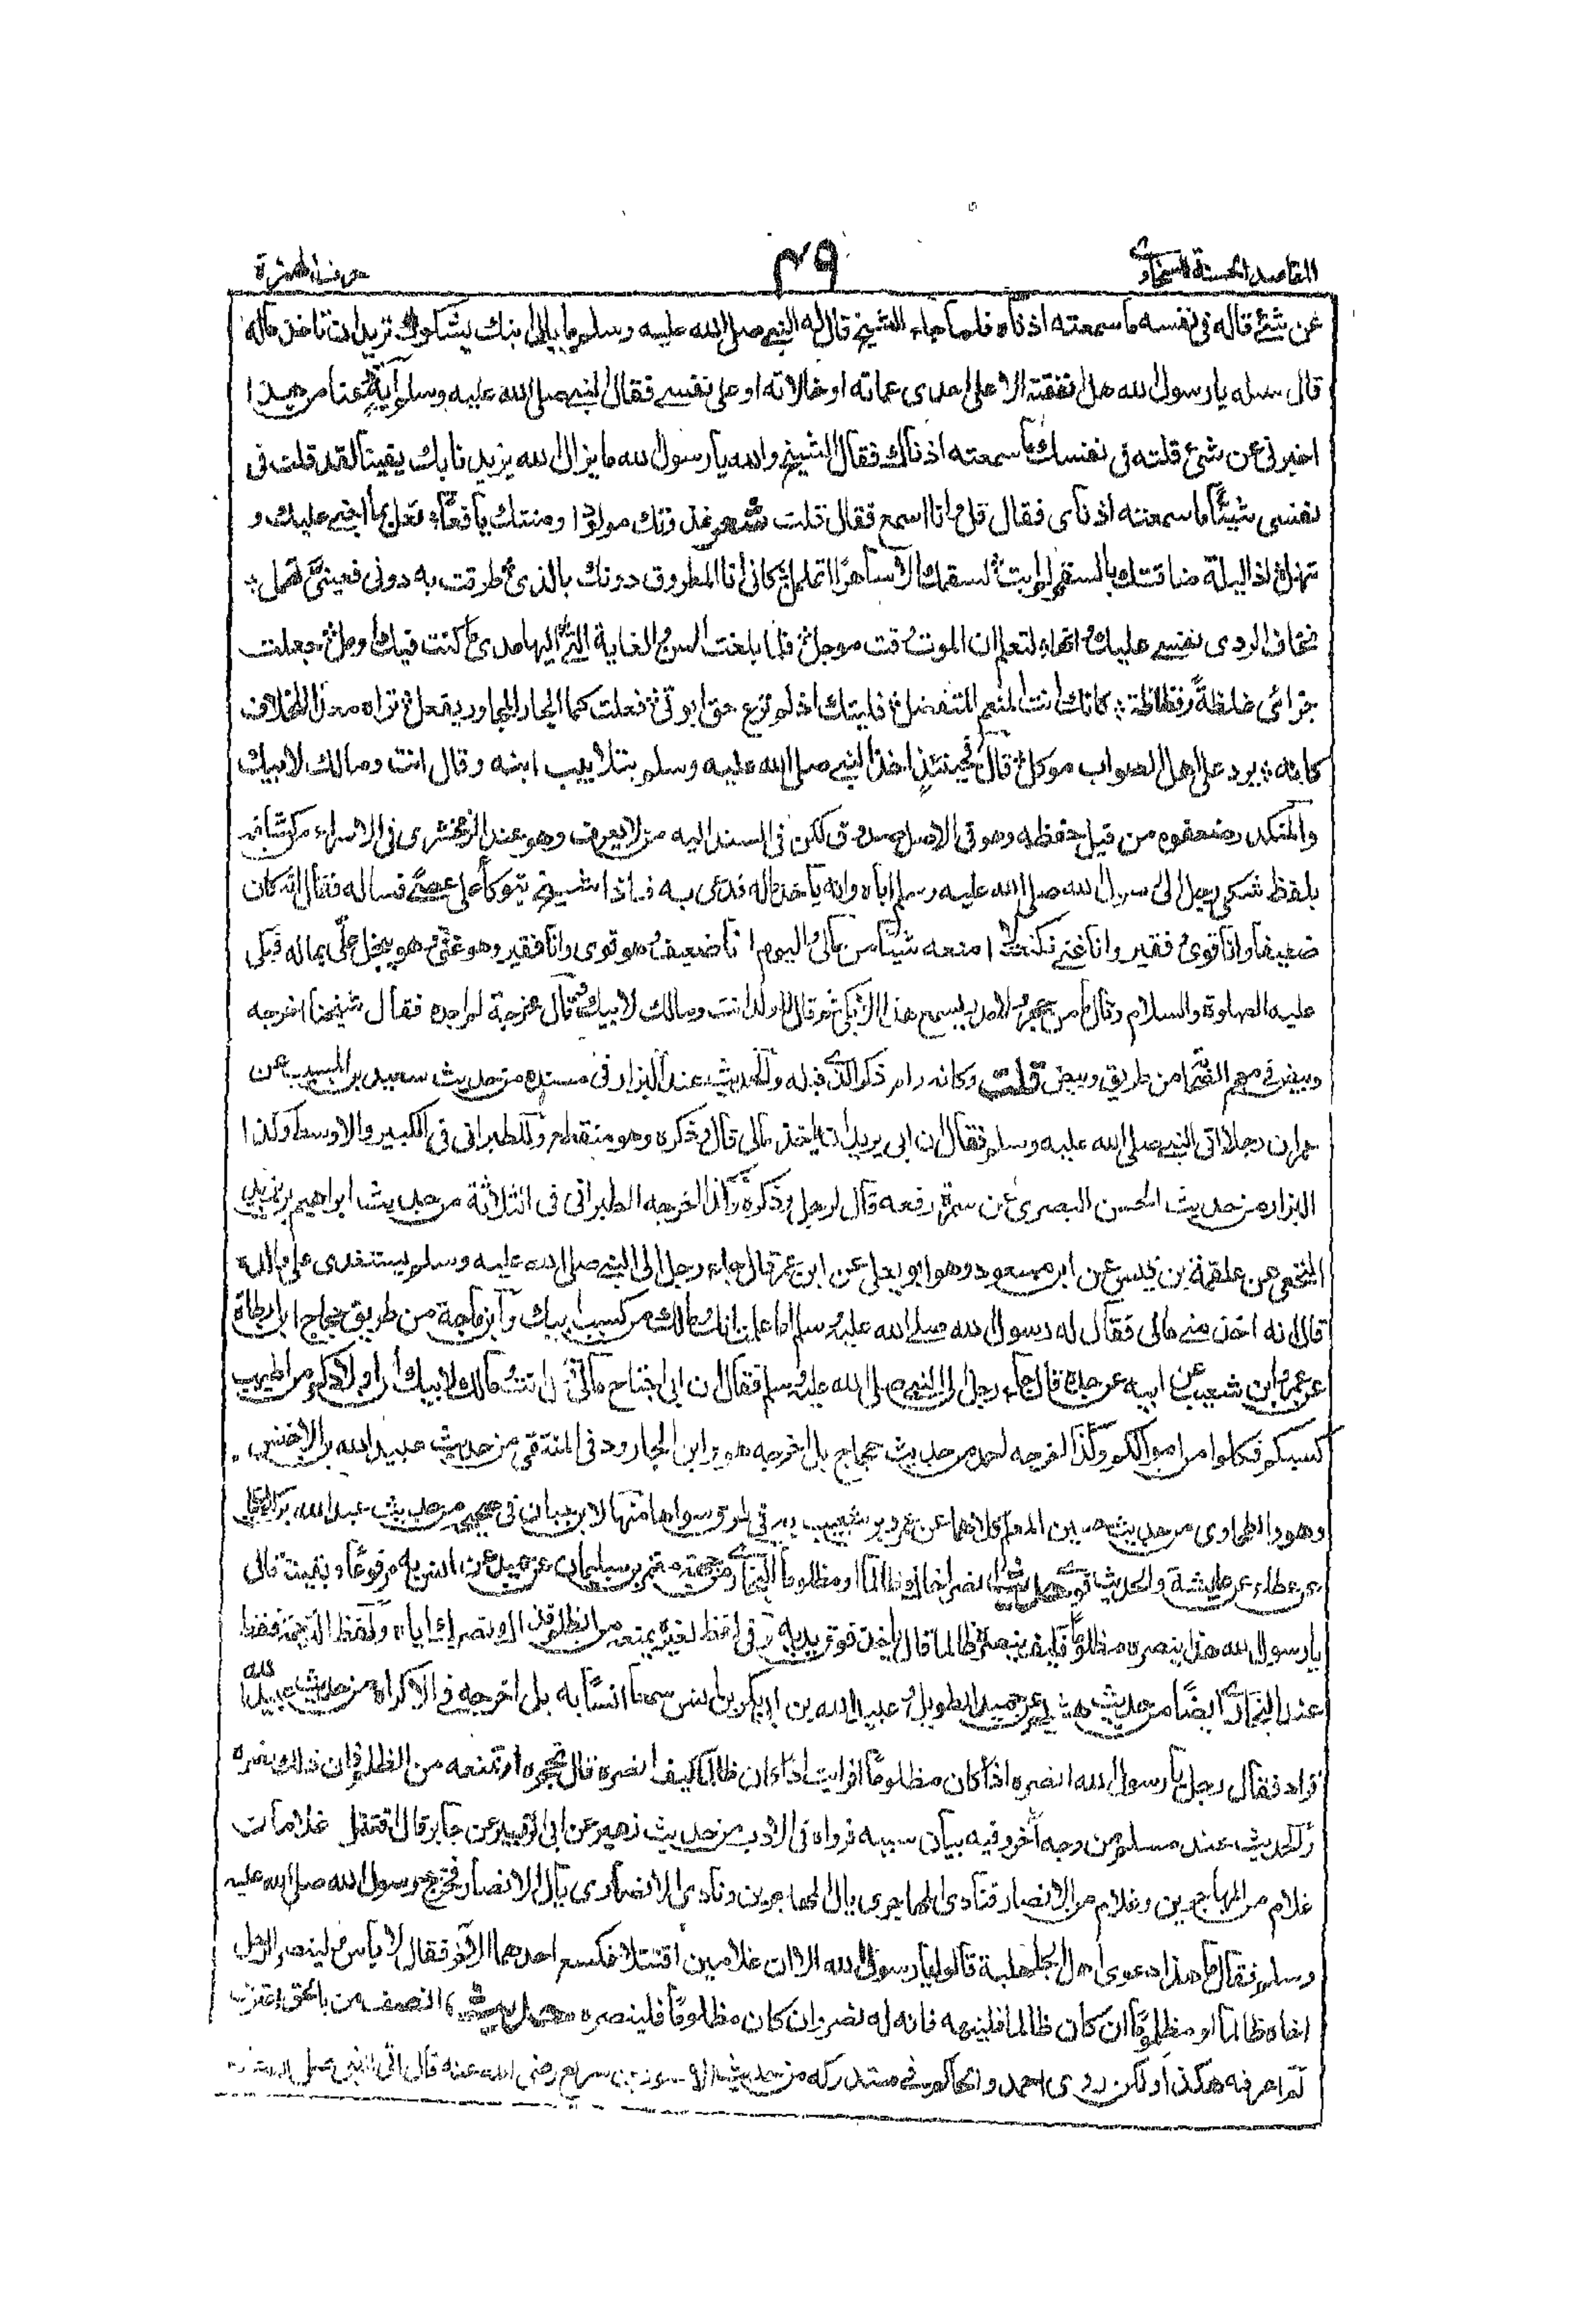 المقاصد الحسنة للسخاوى
٤٩
حرف الهمزة
عن شئ قاله فى نفسه ما سمعته اذناه فلما جاء الشيخ قال له النبى صلى الله عليه وسلم ما بال ابنك يشكوك تريد ان تاخذ ماله
قال سله يا رسول الله هل انفقته الا على احدى عماته او خالاته او على نفسى فقال النبى صلى الله عليه وسلم ايه دعنا من هذا
اخبرنى عن شئ قلته فى نفسك ما سمعته اذناك فقال الشيخ والله يا رسول الله ما يزال الله يزيدنا بك يقينا لقد قلت فى
نفسى شيئا ما سمعته اذناى فقال قل وانا اسمع فقال قلت شعر غذوتك مولودا ومنتك يافعا تعل بما اجنى عليك و
تنهل اذا ليلة ضاقتك بالسقم لم ابت لسقمك الا ساهرا اتململ كانى انا المطروق دونك بالذى طرقت به دونى فعينى تهمل
تخاف الردى نفسى عليك وانها لتعلم ان الموت وقت موجل فلما بلغت السن والغاية التى اليها مدى ما كنت فيك اومل جعلت
جزائى غلظة وفظاظة كانك انت المنعم المتفضل فليتك اذ لم ترع حق ابوتى فعلت كما الجار المجاور يفعل تراه معدا للخلاف
كانه برد على اهل الصواب موكل قال فحينئذ اخذ النبى صلى الله عليه وسلم بتلابيب ابنه وقال انت ومالك لابيك
والمنكدر ضعفوه من قبل حفظه وهو فى الاصل صدوق لكن فى السند اليه من لا يعرف وهو عند الزمخشرى فى الاسراء من كشافه
بلفظ شكى رجل الى رسول الله صلى الله عليه وسلم اباه وانه ياخذ ماله فدعى به فاذا شيخ يتوكأ على عصى فساله فقال انه كان
ضعيفا وانا قوى وفقير وانا غنى فكنت لا امنعه شيئا من مالى واليوم انا ضعيف وهو قوى وانا فقير وهو غنى وهو يبخل على بماله فبكى
عليه الصلوة والسلام وقال ما من حجر ولا مدر يسمع هذا الا بكى ثم قال للولد انت ومالك لابيك وقال مخرجه لم اجده فقال شيخنا اخرجه
وبيض فى معجم الصحابة من طريق وبيض قلت وكانه رام ذكر الذى قبله والحديث عند البزار فى مسنده من حديث سعيد بن المسيب عن
عمر ان رجلا اتى النبى صلى الله عليه وسلم فقال ان ابى يريد ان ياخذ مالى قال وذكره وهو منقطع وللطبرانى فى الكبير والاوسط وكذا
البزار من حديث الحسن البصرى عن سمرة رفعه قال لرجل وذكره وكذا اخرجه الطبرانى فى الثلاثة من حديث ابراهيم بن يزيد
النخعى عن علقمة بن قيس عن ابن مسعود وهو ابو يعلى عن ابن عمر قال جاء رجل الى النبى صلى الله عليه وسلم يستعدى على والده
قال انه اخذ منى مالى فقال له رسول الله صلى الله عليه وسلم اما علمت انك ومالك من كسب ابيك وابن ماجة من طريق حجاج بن ارطاة
عن عمرو ابن شعيب عن ابيه عن جده قال جاء رجل الى النبى صلى الله عليه وسلم فقال ان ابى اجتاح مالى قال انت ومالك لابيك ان اولادكم من اطيب
كسبكم فكلوا من اموالكم وكذا اخرجه احمد من حديث حجاج بل اخرجه هو وابن الجارود فى المنتقى من حديث عبيد الله بن الاخنس
وهو والطحاوى من حديث حسين المعلم كلاهما عن عمرو بن شعيب به وفى الباب وسواها منها لابن حبان فى صحيحه من حديث عبد الله بن كيسان
عن عطاء عن عايشة والحديث قوى حديث انصر اخاك ظالما او مظلوما البخارى من جهة معتمر بن سليمان عن حميد عن انس به مرفوعا وبقيته قالوا
يا رسول الله هذا ينصره مظلوما فكيف ينصره ظالما قال ياخذ فوق يديه وفى لفظ لغيره يمنعه من الظلم فذلك نصرك اياه ولفظ الترجمة فقط
عند البخارى ايضا من حديث هشيم عن حميد الطويل وعبيد الله بن ابى بكر بن انس سمعا انسا به بل اخرجه فى الاكراه من حديث عبيد الله
فزاد فقال رجل يا رسول الله انصره اذا كان مظلوما افرايت اذا كان ظالما كيف انصره قال تحجزه او تمنعه من الظلم فان ذلك نصره
والحديث عند مسلم من وجه اخر وفيه بيان سببه فرواه فى الادب من حديث زهير عن ابى الزبير عن جابر قال اقتتل غلامان
غلام من المهاجرين وغلام من الانصار فنادى المهاجرى يال المهاجرين ونادى الانصارى يال الانصار فخرج رسول الله صلى الله عليه
وسلم فقال ما هذا دعوى اهل الجاهلية قالوا يا رسول الله الا ان غلامين اقتتلا فكسع احدهما الآخر فقال لا بأس ولينصر الرجل
اخاه ظالما او مظلوما ان كان ظالما فلينهه فانه له نصر وان كان مظلوما فلينصره حديث انصف من بالحق اعترف
لم اعرفه هكذا ولكن روى احمد والحاكم فى مستدركه من حديث الاسود بن سريع رضى الله عنه قال اتى النبى صلى الله عليه